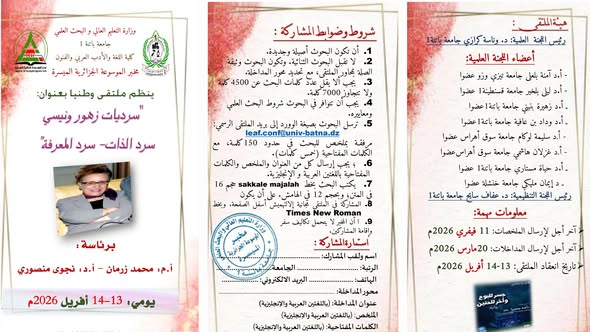 وزارة التعليم العالي و البحث العلمي
جامعة باتنة 1
كلية اللغة والأدب العربي والفنون
مخبر الموسوعة الجزائرية الميسرة
ينظم ملتقى وطنيا بعنوان:
"سرديات زهور ونيسي
سرد الذات- سرد المعرفة"
برئاسة:
أ.م، محمد زرمان – أ.د، نجوى منصوري
يومي: 13-14 أفريل 2026م
شروط وضوابط المشاركة :
1. أن تكون البحوث أصيلة وجديدة.
2. لا تقبل البحوث الثنائية، وتكون البحوث وثيقة
الصلة بمحاور الملتقى، مع تحديد محور المداخلة.
3. يجب ألا يقل عدد كلمات البحث عن 4500 كلمة
ولا تتجاوز 7000 كلمة.
4. يجب أن تتوافر في البحوث شروط البحث العلمي
ومعاييره.
5. ترسل البحوث بصيغة الوورد إلى بريد الملتقى الرسمي:
leaf.conf@univ-batna.dz
مرفقة بملخص للبحث في حدود 150 كلمة، مع
الكلمات المفتاحية (خمس كلمات).
6. يجب إرسال كل من العنوان والملخص والكلمات
المفتاحية باللغتين العربية و الإنجليزية.
7. يكتب البحث بخط sakkale majalah حجم 16
في المتن، وبحجم 12 في الهامش، على أن يكون
8. المشاركة في الملتقى مجانية
Times New Roman
9. المخبر لا يتحمل تكاليف سفر
وإقامة المشاركين.
استمارة المشاركة:
اسم ولقب المشارك:
الرتبة: الجامعة
الهاتف: البريد الالكتروني:
محور المداخلة:
عنوان المداخلة: (باللغتين العربية والإنجليزية)
الملخص: (باللغتين العربية والإنجليزية)
الكلمات المفتاحية: (باللغتين العربية والإنجليزية)
هيئة الملتقى :
رئيس اللجنة العلمية: د. وناسة كرازي جامعة باتنة1
أعضاء اللجنة العلمية:
- أ.د آمنة بلعلى جامعة تيزي وزو عضوا
- أ.د ليلى بلخير جامعة قسنطينة1 عضوا
- أ.د زهيرة بنيني جامعة باتنة1 عضوا
- أ.د وداد بن عافية جامعة باتنة1 عضوا
- أ.د سليمة لوكام جامعة سوق أهراس عضوا
- أ.د غزلان هاشمي جامعة سوق أهراس عضوا
- أ.د حياة مستاري جامعة باتنة1 عضوا
- د إيمان مليكي جامعة خنشلة عضوا
رئيس اللجنة التنظيمية: د. عفاف سايح جامعة باتنة1
معلومات مهمة:
آخر أجل لإرسال الملخصات: 11 فيفري 2026م
آخر أجل لإرسال المداخلات: 20 مارس 2026م
تاريخ انعقاد الملتقى: 13-14 أفريل 2026م
جسر للبوح
وآخر للحنين